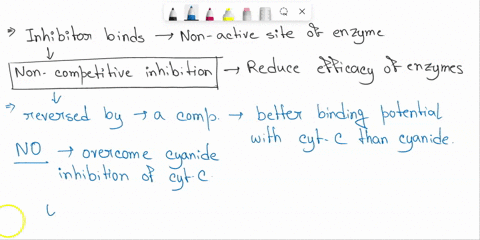 ⇒ Inhibitor binds → Non-active site of enzyme
Non-competitive inhibition → Reduce efficacy of enzymes
⇒ reversed by → a comp. → better binding potential
with cyt-C than cyanide.
NO → overcome cyanide
inhibition of cyt-C.